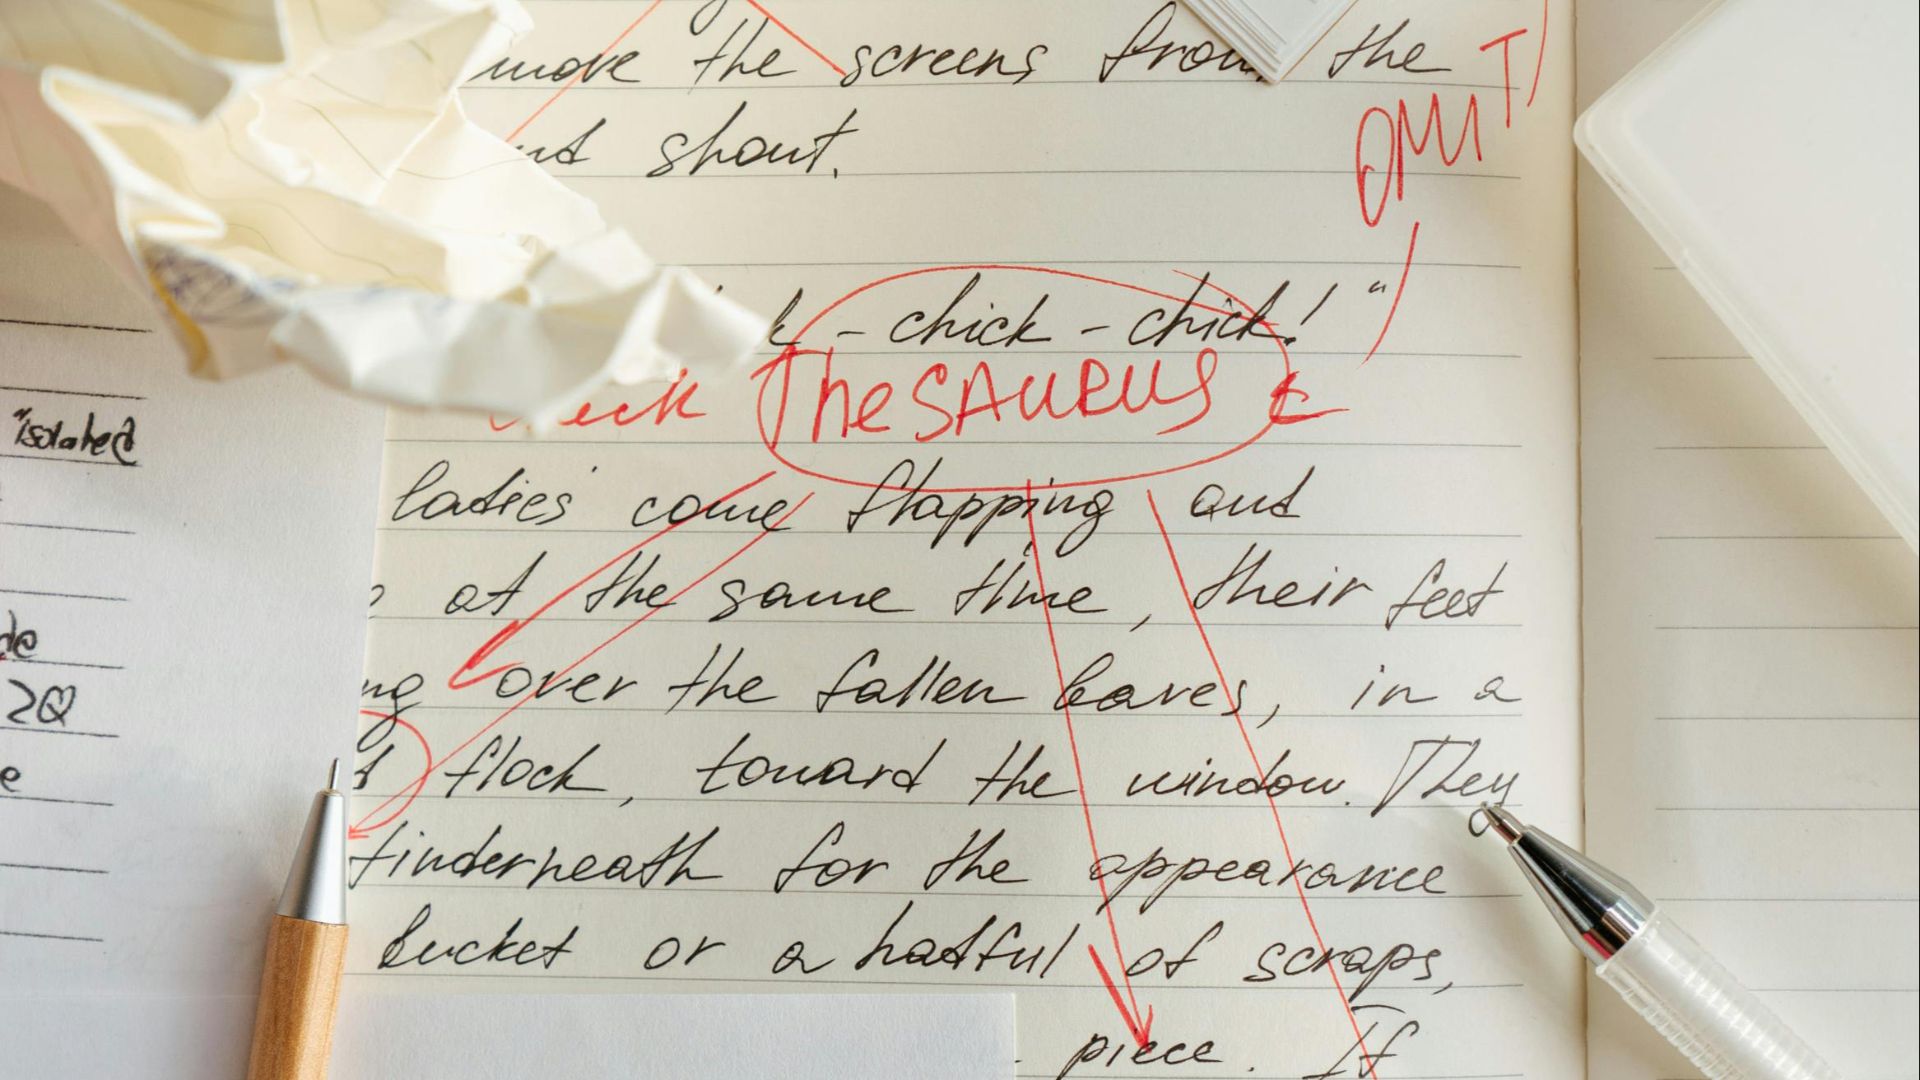 move the screens from the
OMIT
shout.
- chick - chick! "
THeSAURUS
ladies come flapping out
at the same time, their feet
over the fallen leaves, in a
flock, toward the window. They
underneath for the appearance
bucket or a hatful of scraps,
piece. If
"isolated